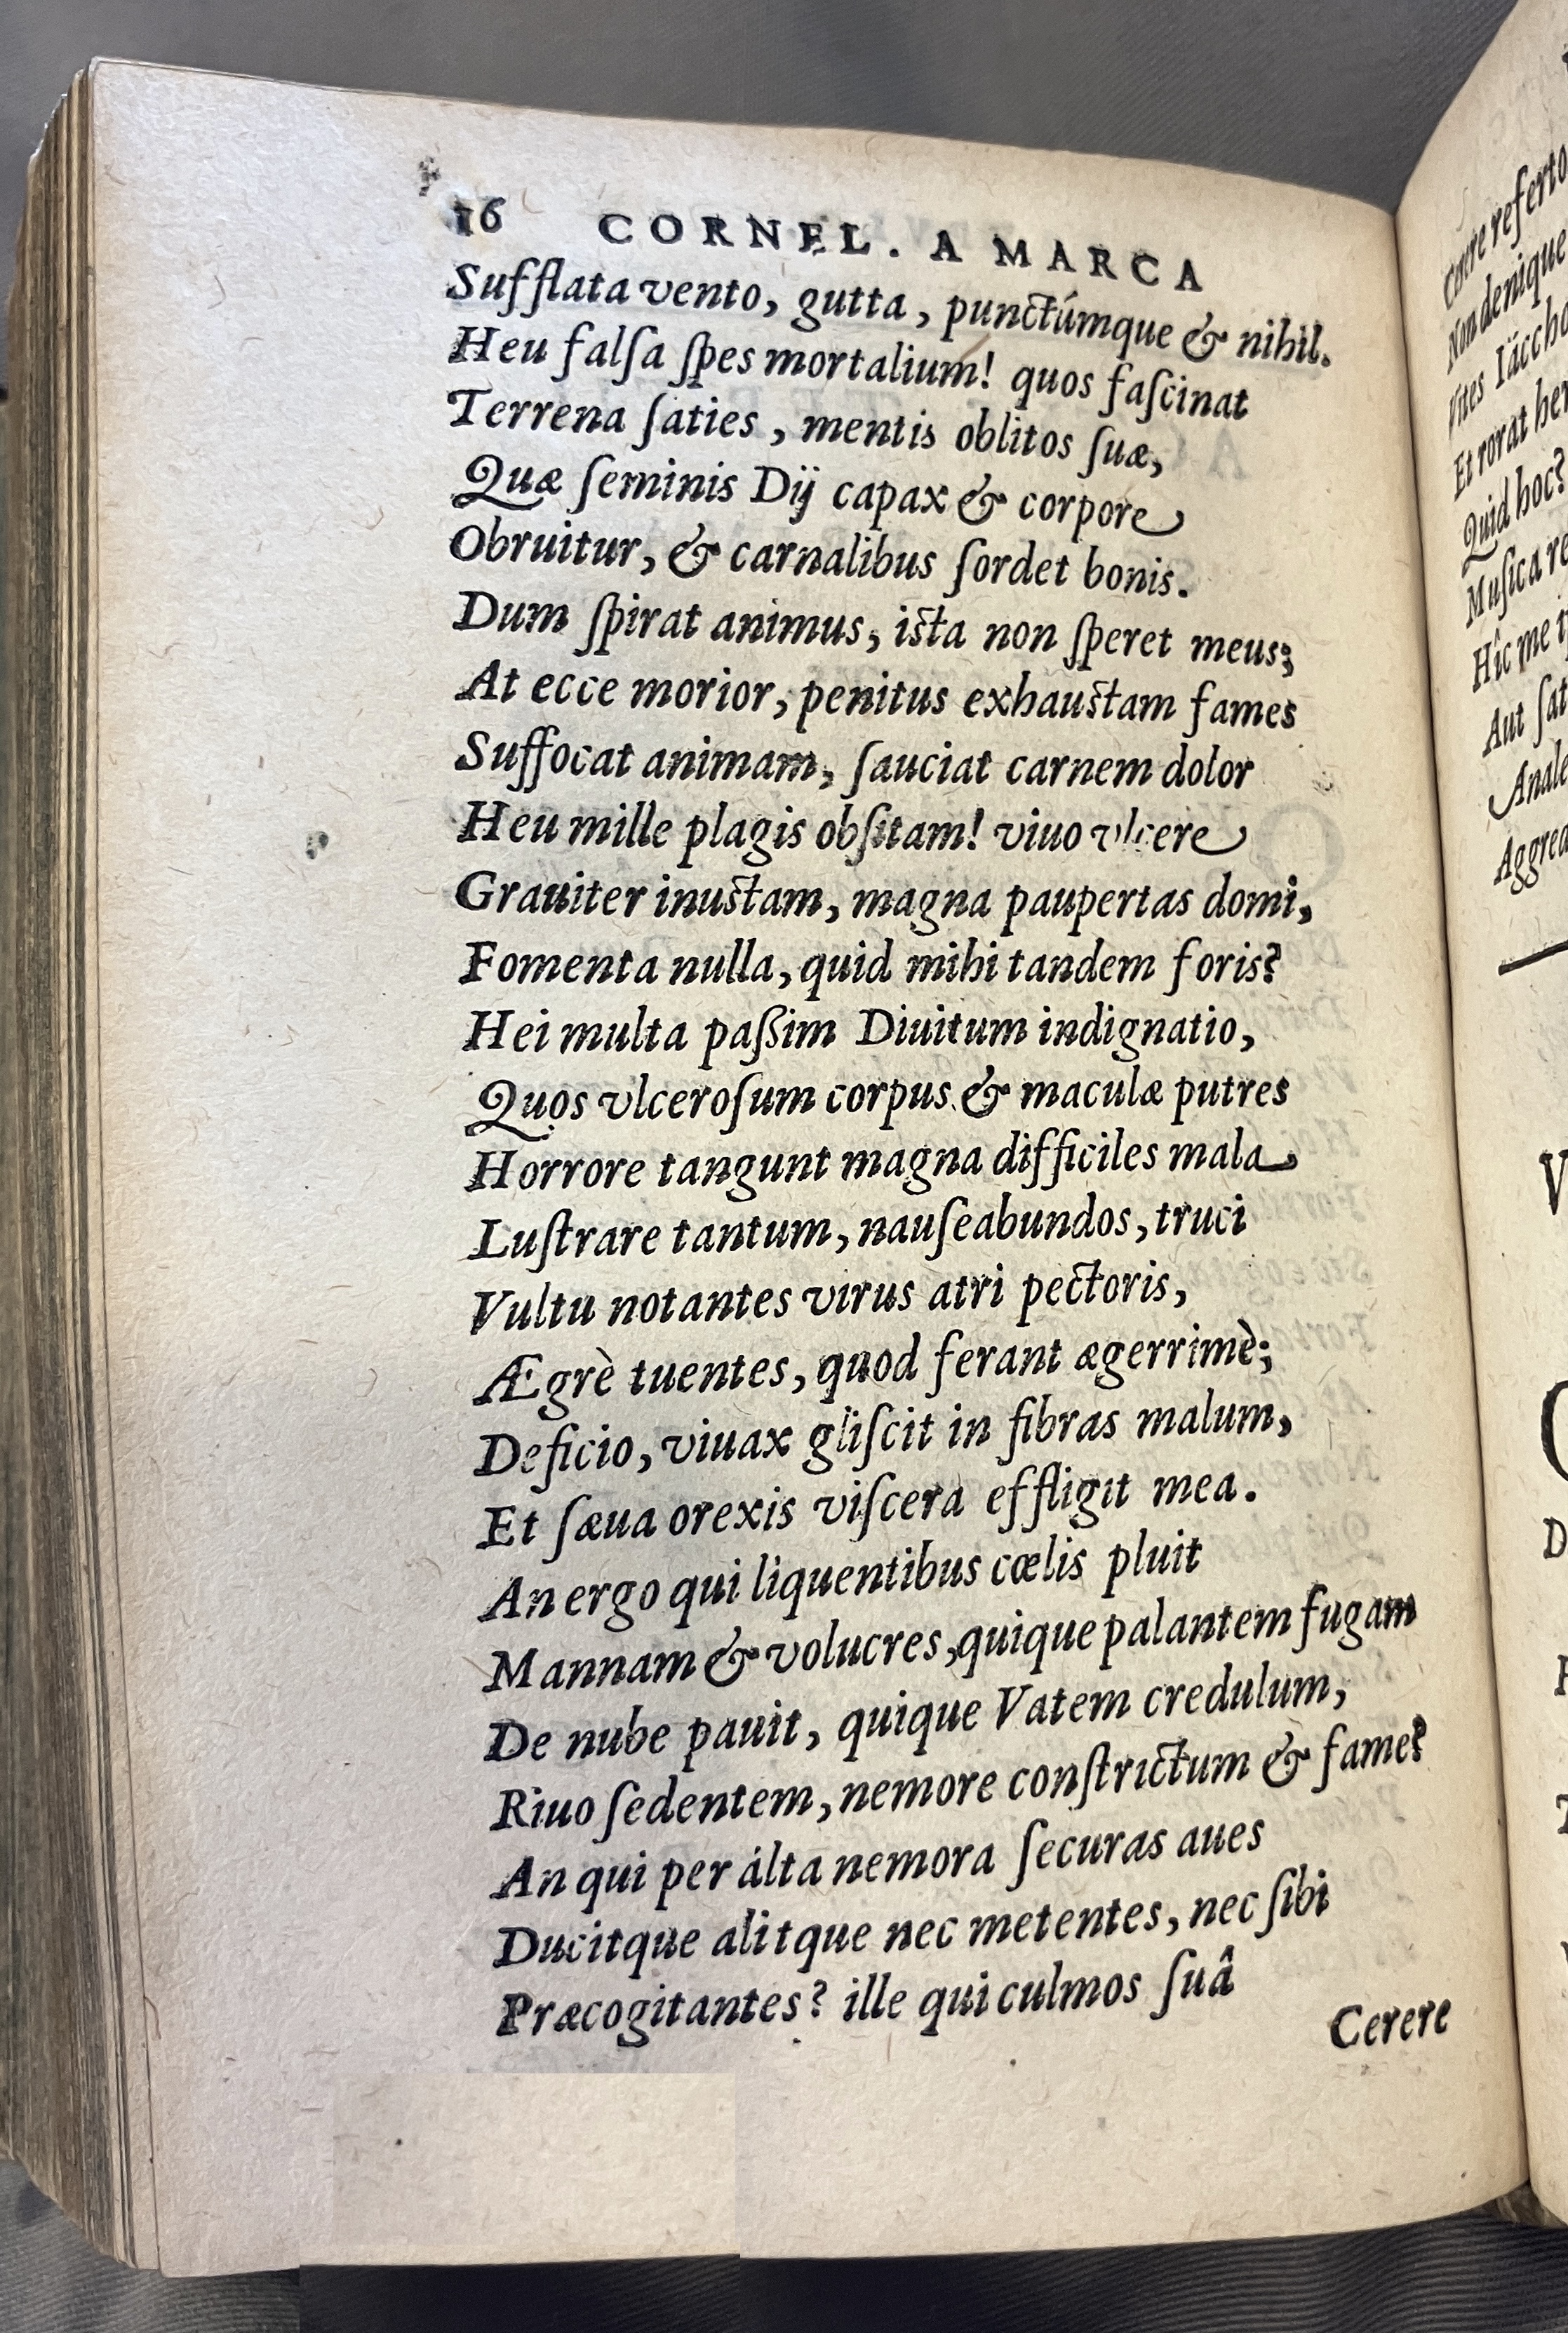 16 CORNEL. A MARCA
Sufflata vento, gutta, punctúmque & nihil.
Heu falſa ſpes mortalium! quos faſcinat
Terrena ſaties, mentis oblitos ſuæ,
Quæ ſeminis Dij capax & corpore
Obruitur, & carnalibus ſordet bonis.
Dum ſpirat animus, iſta non ſperet meus;
At ecce morior, penitus exhauſtam fames
Suffocat animam, ſauciat carnem dolor
Heu mille plagis obſitam! viuo vlcere
Grauiter inuſtam, magna paupertas domi,
Fomenta nulla, quid mihi tandem foris?
Hei multa paßim Diuitum indignatio,
Quos vlceroſum corpus & maculæ putres
Horrore tangunt magna difficiles mala
Luſtrare tantum, nauſeabundos, truci
Vultu notantes virus atri pectoris,
Ægrè tuentes, quod ferant ægerrimè;
Deficio, viuax gliſcit in fibras malum,
Et ſæua orexis viſcera effligit mea.
An ergo qui liquentibus cœlis pluit
Mannam & volucres, quique palantem fugam
De nube pauit, quique Vatem credulum,
Riuo ſedentem, nemore conſtrictum & fame?
An qui per álta nemora ſecuras aues
Ducitque alitque nec metentes, nec ſibi
Præcogitantes? ille qui culmos ſuâ
Cerere
referto
Non denique
Vites Iäccho
Et rorat
Quid hoc?
Muſica
Hîc me
Aut